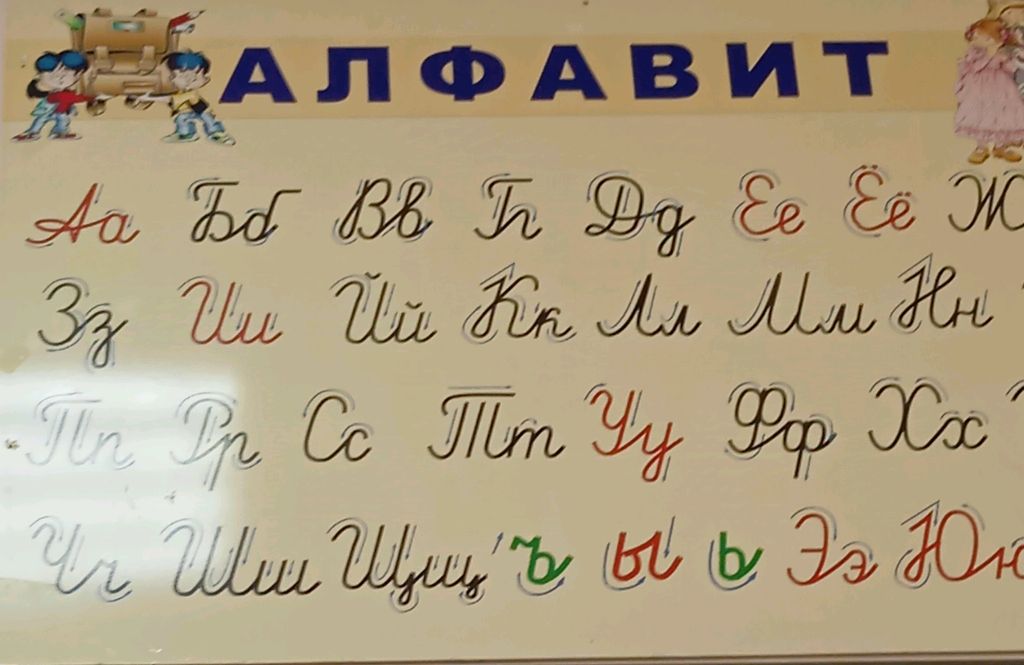 АЛФАВИТ
Аа Бб Вв Гг Дд Ее Ёё Ж
Зз Ии Йй Кк Лл Мм Нн
Пп Рр Сс Тт Уу Фф Хх
Чч Шш Щщ ъ ы ь Ээ Юю